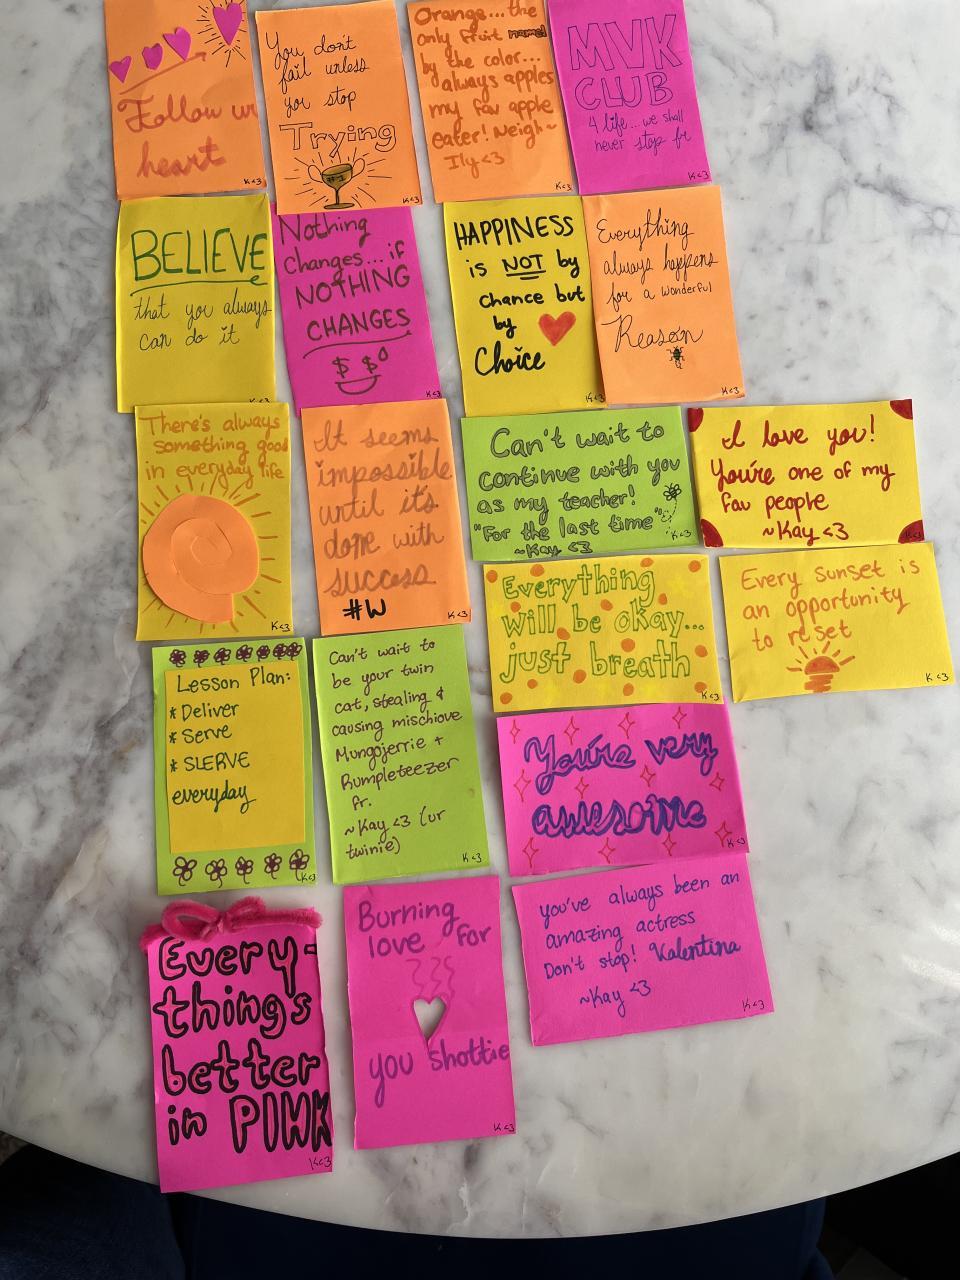 Follow ur
heart
K<3
You don't
fail unless
you stop
Trying
#1
K<3
Orange... the
only fruit named
by the color...
always apples
my fav apple
eater! Neigh~
Ily<3
K<3
MVK
CLUB
4 life... we shall
never stop fr
K<3
BELIEVE
that you always
can do it
K<3
Nothing
Changes... if
NOTHING
CHANGES
$ $
K<3
HAPPINESS
is NOT by
chance but
by
Choice
K<3
Everything
always happens
for a wonderful
Reason
K<3
There's always
something good
in everyday life
K<3
It seems
impossible
until it's
done with
success
#W
K<3
Can't wait to
continue with you
as my teacher!
"For the last time"
~Kay <3
K<3
I love you!
You're one of my
fav people
~Kay <3
K<3
Everything
will be okay...
just breath
K<3
Every sunset is
an opportunity
to reset
K<3
Lesson Plan:
* Deliver
* Serve
* SLERVE
everyday
K<3
Can't wait to
be your twin
cat, stealing &
causing mischiove
Mungojerrie +
Rumpleteezer
fr.
~Kay <3 (ur
twinie)
K<3
You're very
awesome
K<3
Every-
things
better
in PINK
K<3
Burning
love for
you shottie
K<3
you've always been an
amazing actress
Don't stop! Valentina
~Kay <3
K<3